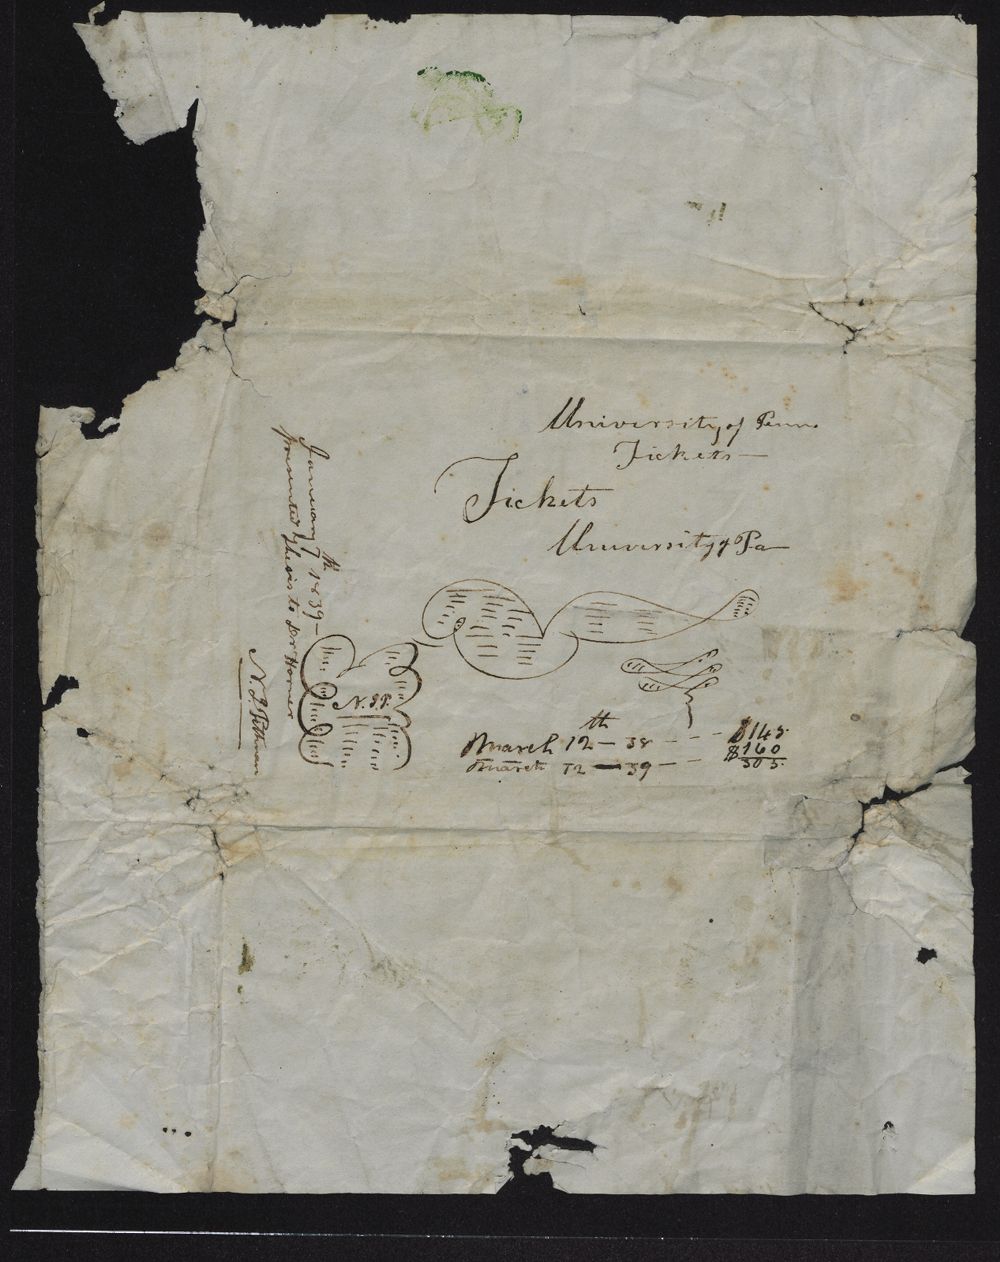 University of Penn
Tickets
Tickets
University of Pa
March 12th - 38 - - - $145.
March 12 - 39 - - $160
305.
N. J. P.
January 7th 1839
presented Thesis to Dr Horner
N. J. Pittman